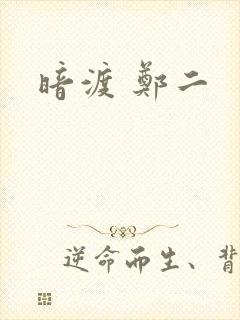 暗渡 鄭二
逆命而生、背